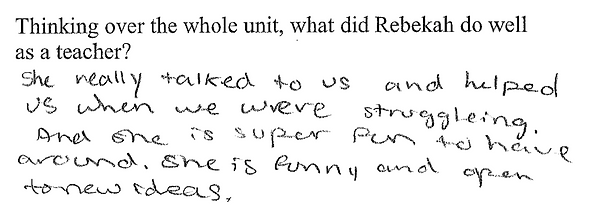 Thinking over the whole unit, what did Rebekah do well
as a teacher?
She really talked to us and helped
us when we wrere struggleing.
And she is super fun to have
around. She is funny and open
to new ideas.